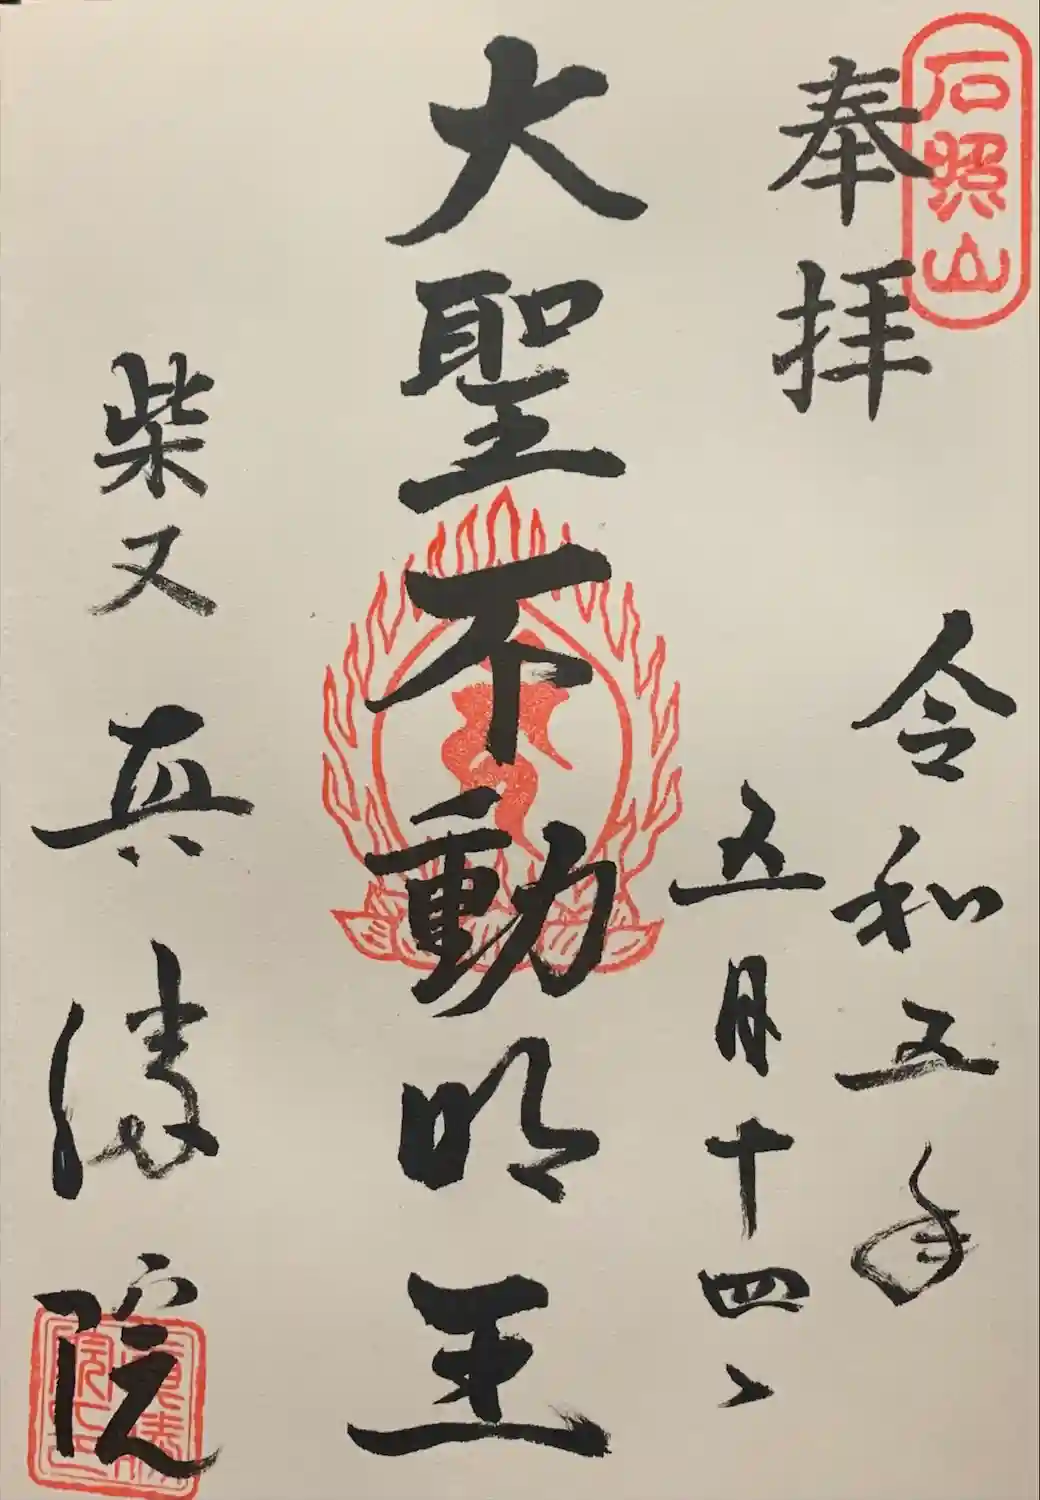 石照山
奉拝
令和五年
五月十四日
大聖不動明王
柴又真勝院